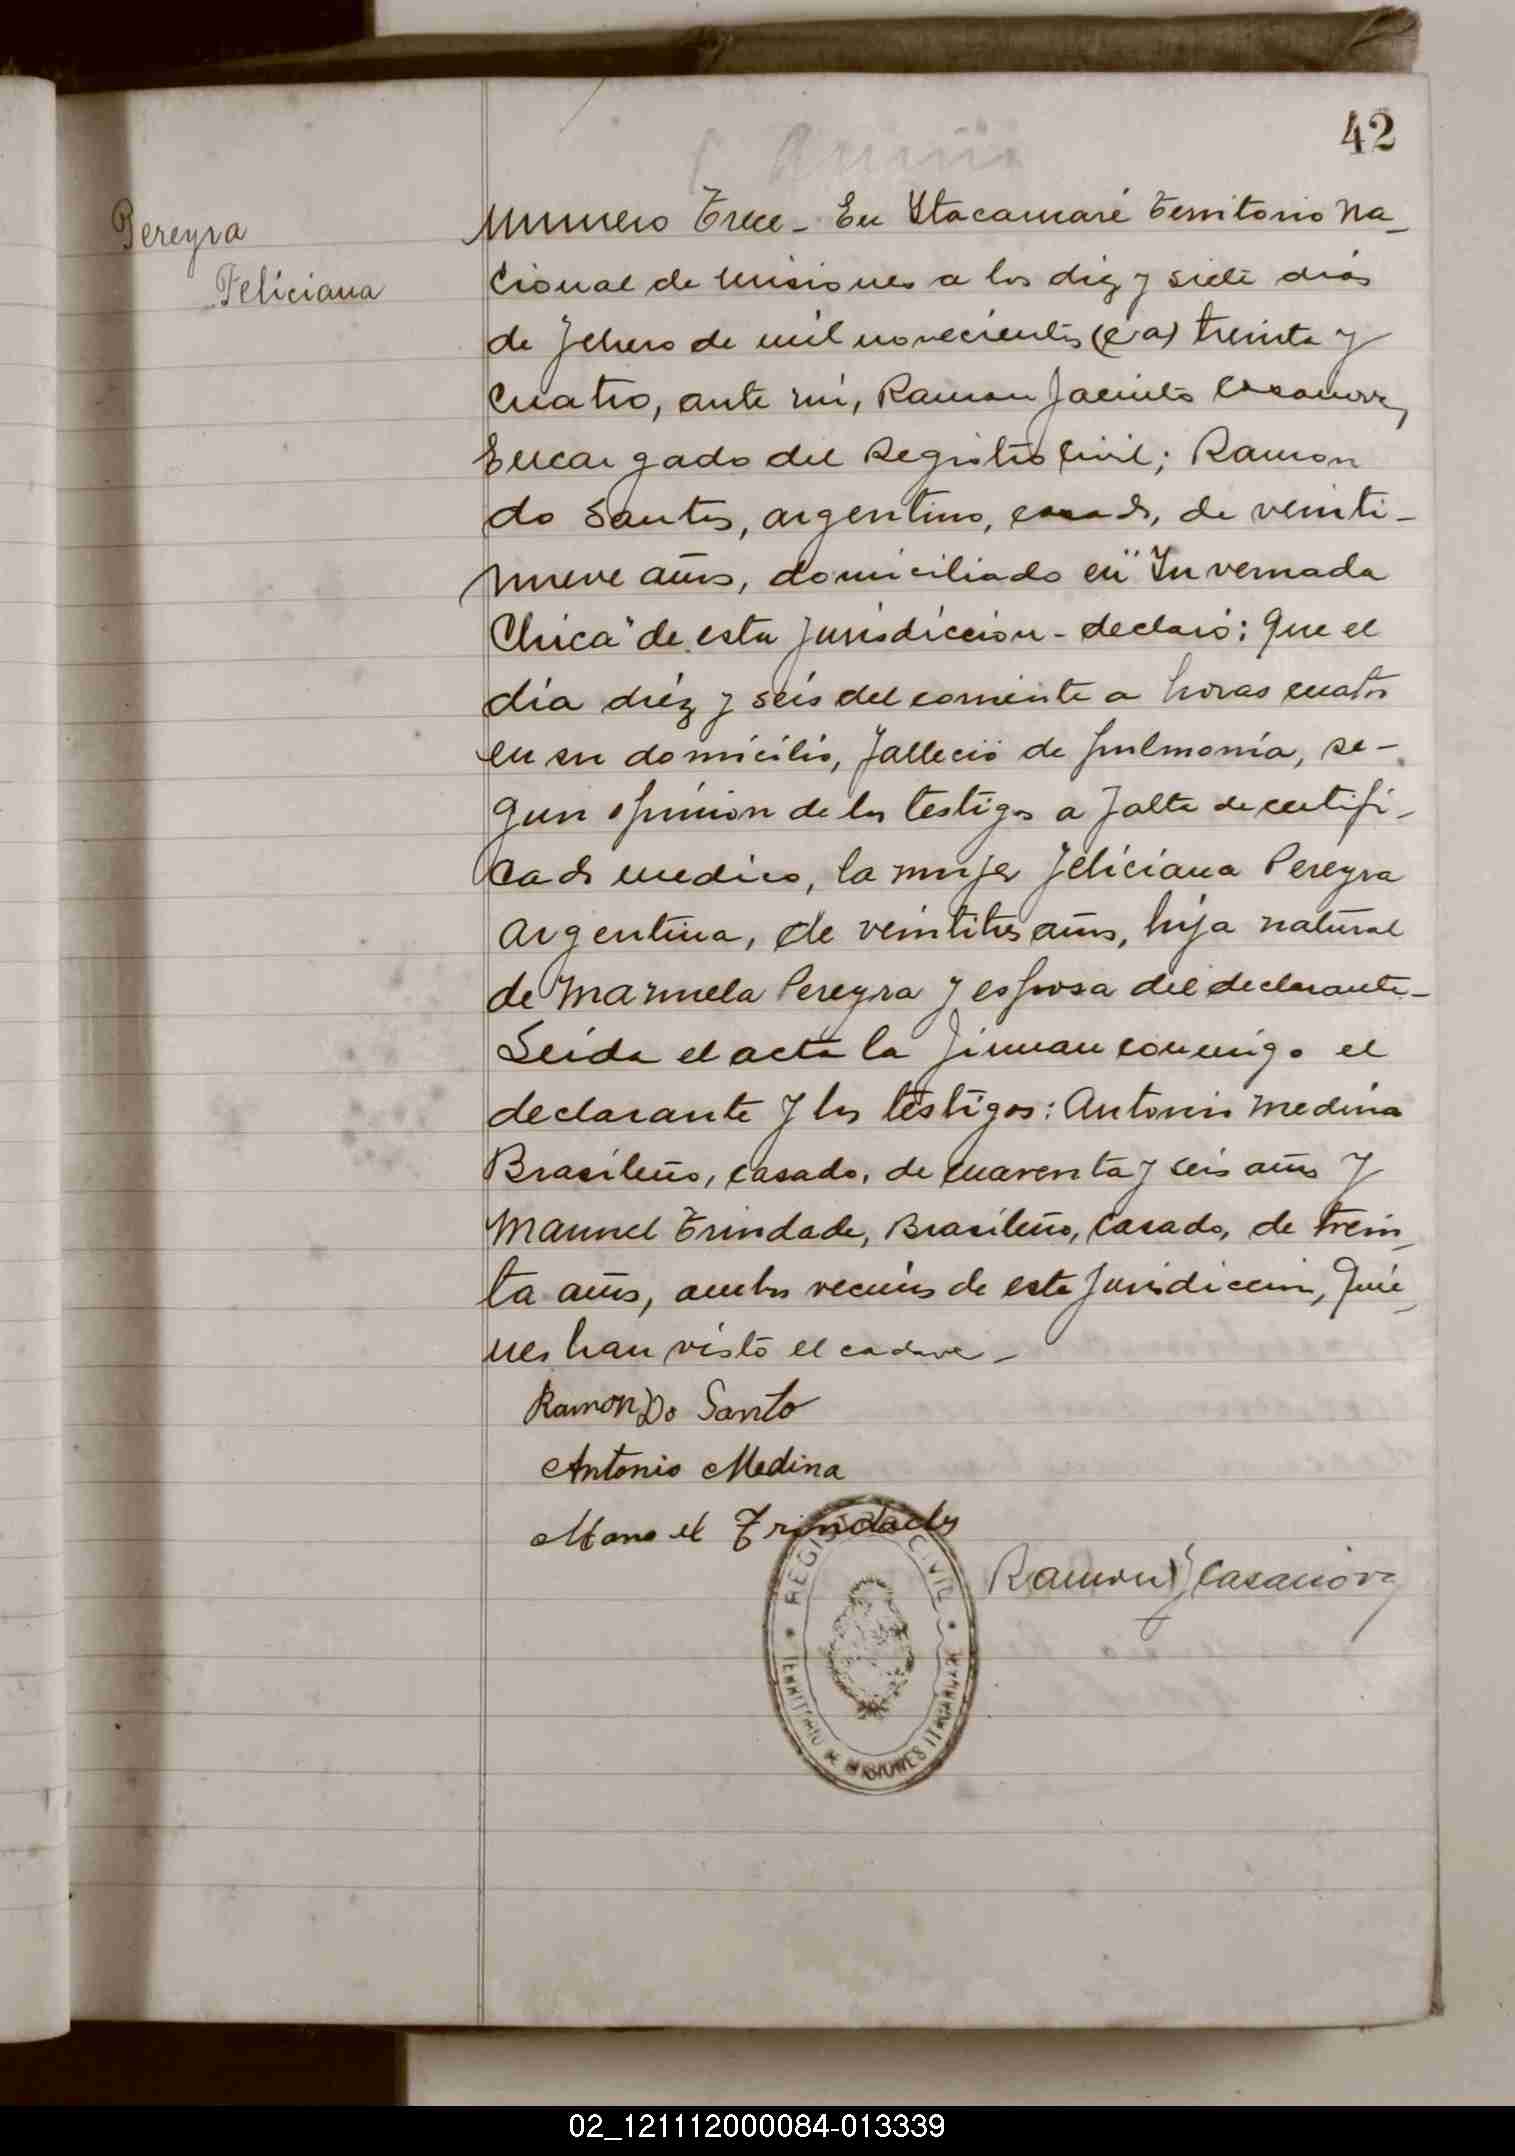 42
Pereyra
Feliciana
Numero Trece - En Itacaruaré Territorio Na-
cional de Misiones a los diez y siete dias
de febrero de mil novecientos treinta y
cuatro, ante mi, Ramon Jacinto Casanova,
Encargado del Registro Civil; Ramon
do Santos, argentino, casado, de veinti-
nueve años, domiciliado en "Invernada
Chica" de esta jurisdiccion - declaró: Que el
día diéz y seis del corriente a horas cuatro
en su domicilio, falleció de pulmonía, se-
gun opinion de los testigos a falta de certifi-
cado medico, la mujer Feliciana Pereyra
Argentina, de veintitres años, hija natural
de Manuela Pereyra y esposa del declarante-
Leida el acta la firman conmigo el
declarante y los testigos: Antonio Medina
Brasileño, casado, de cuarenta y seis años y
Manuel Trindade, Brasileño, casado, de trein-
ta años, ambos vecinos de esta jurisdiccion, quie-
nes han visto el cadaver -
Ramon Do Santo
Antonio Medina
Manoel Trindade
Ramon J Casanova
REGISTRO CIVIL
TERRITORIO DE MISIONES
02_121112000084-013339